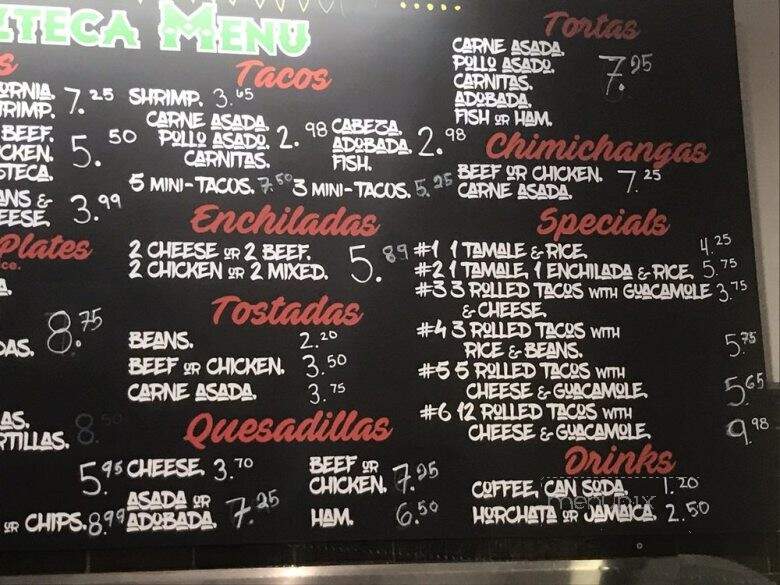 ZTECA MENU
S
ORNIA.
RIMP. 7.25
BEEF.
CKEN.
STECA. 5.50
ANS &
EESE. 3.99
Plates
ce.
A.
DAS. 8.75
AS.
RTILLAS. 8.50
5.95
OR CHIPS. 8.99
Tacos
SHRIMP. 3.65
CARNE ASADA.
POLLO ASADO. 2.98
CARNITAS.
CABEZA.
ADOBADA 2.98
FISH.
5 MINI-TACOS. 7.50 3 MINI-TACOS. 5.25
Enchiladas
2 CHEESE OR 2 BEEF.
2 CHICKEN OR 2 MIXED. 5.89
Tostadas
BEANS. 2.20
BEEF OR CHICKEN. 3.50
CARNE ASADA. 3.75
Quesadillas
CHEESE. 3.70
ASADA OR
ADOBADA. 7.25
BEEF OR
CHICKEN. 7.25
HAM. 6.50
Tortas
CARNE ASADA.
POLLO ASADO. 7.25
CARNITAS.
ADOBADA.
FISH OR HAM.
Chimichangas
BEEF OR CHICKEN. 7.25
CARNE ASADA.
Specials
#1 1 TAMALE & RICE. 4.25
#2 1 TAMALE, 1 ENCHILADA & RICE. 5.75
#3 3 ROLLED TACOS WITH GUACAMOLE 3.75
& CHEESE.
#4 3 ROLLED TACOS WITH
RICE & BEANS. 5.75
#5 5 ROLLED TACOS WITH
CHEESE & GUACAMOLE. 5.65
#6 12 ROLLED TACOS WITH
CHEESE & GUACAMOLE. 9.98
Drinks
COFFEE, CAN SODA. 1.20
HORCHATA OR JAMAICA. 2.50
menupix